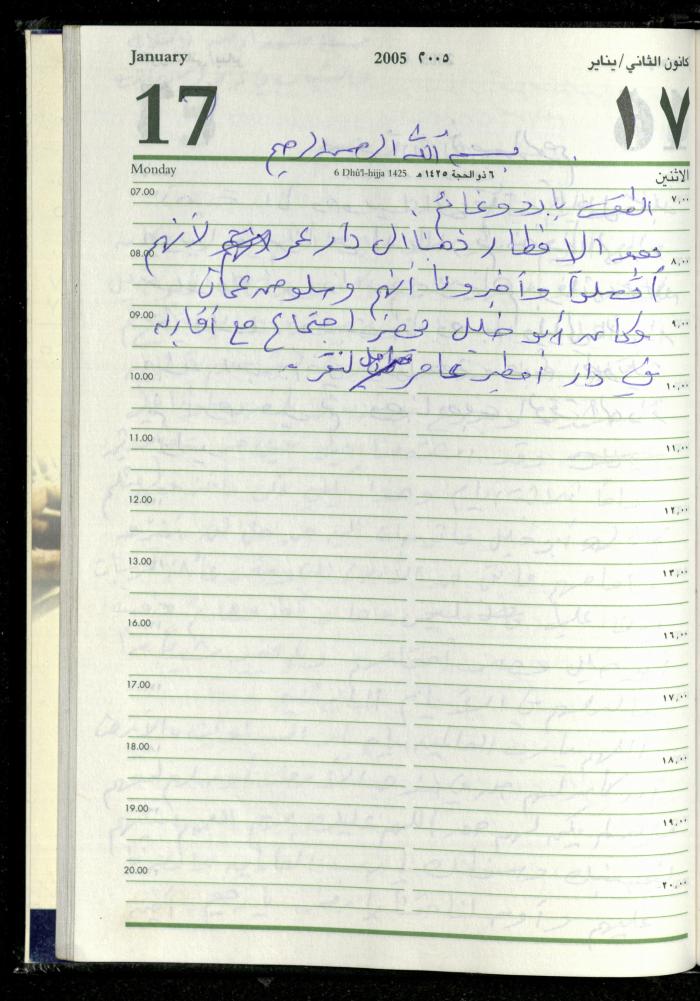 January 2005 ٢٠٠٥ كانون الثاني/يناير
17 ١٧
بسم الله الرحمن الرحيم
Monday 6 Dhū'l-hijja 1425 ٦ ذو الحجة ١٤٢٥ هـ الاثنين
07.00 ٧,٠٠
الطقس بارد وغائم.
بعد الافطار ذهبنا الى دار عمر لأنهم
08.00 ٨,٠٠
وأخبرونا أنهم عمان
09.00 ٩,٠٠
وكان أبو خليل يحضر اجتماع مع أقاربه
في دار
10.00 ١٠,٠٠
11.00 ١١,٠٠
12.00 ١٢,٠٠
13.00 ١٣,٠٠
16.00 ١٦,٠٠
17.00 ١٧,٠٠
18.00 ١٨,٠٠
19.00 ١٩,٠٠
20.00 ٢٠,٠٠